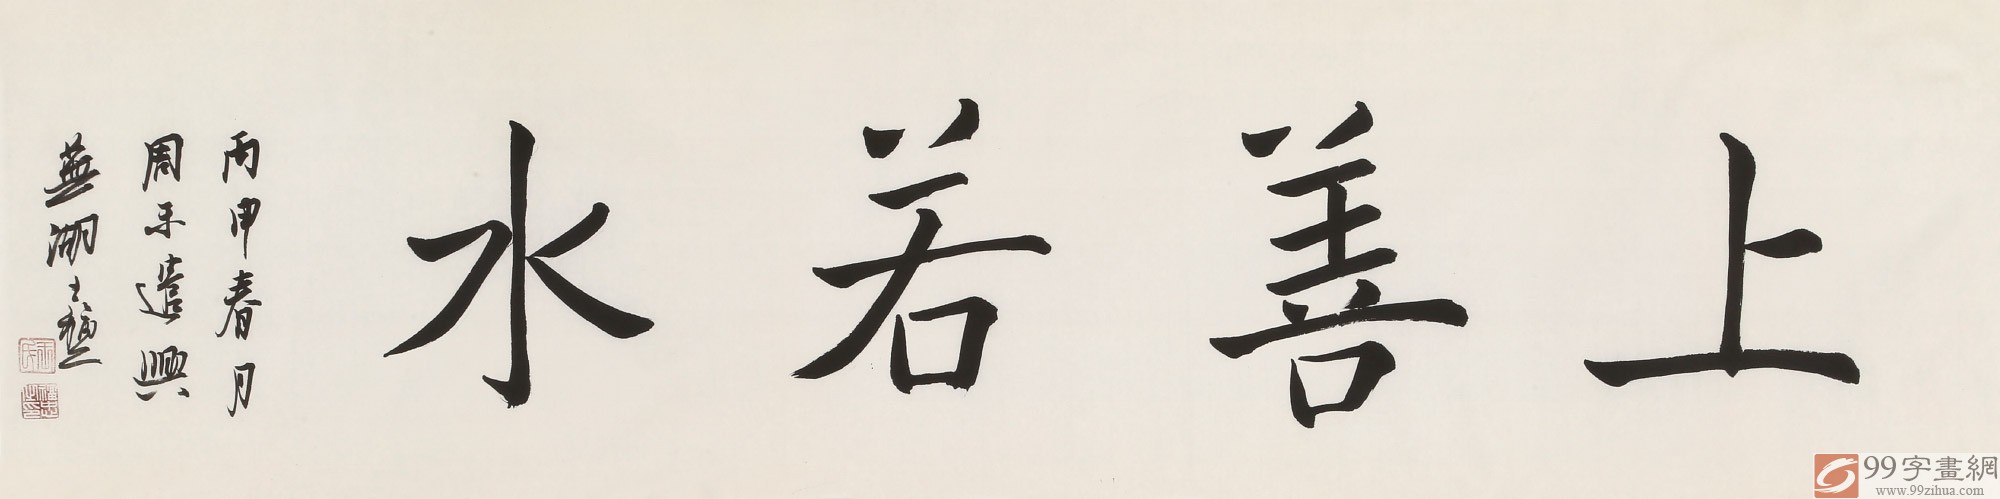 上善若水
丙申春月
周末遣興
蕪湖
99字畫網
www.99zihua.com